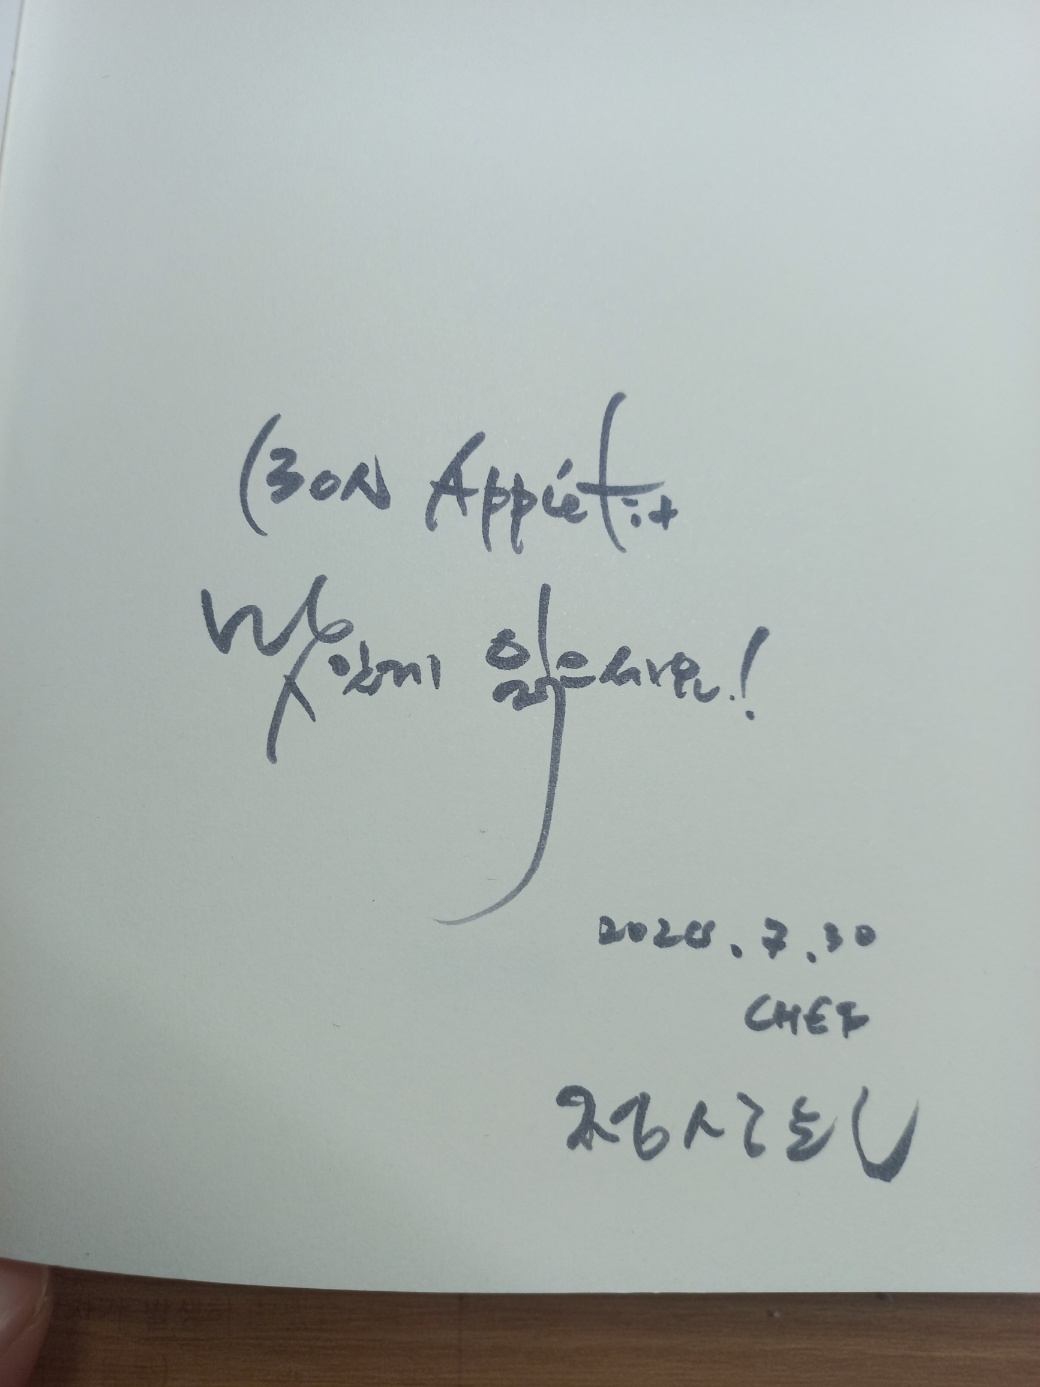 BON Appietit
맛있게 읽으세요!
2024.7.30
CHEF